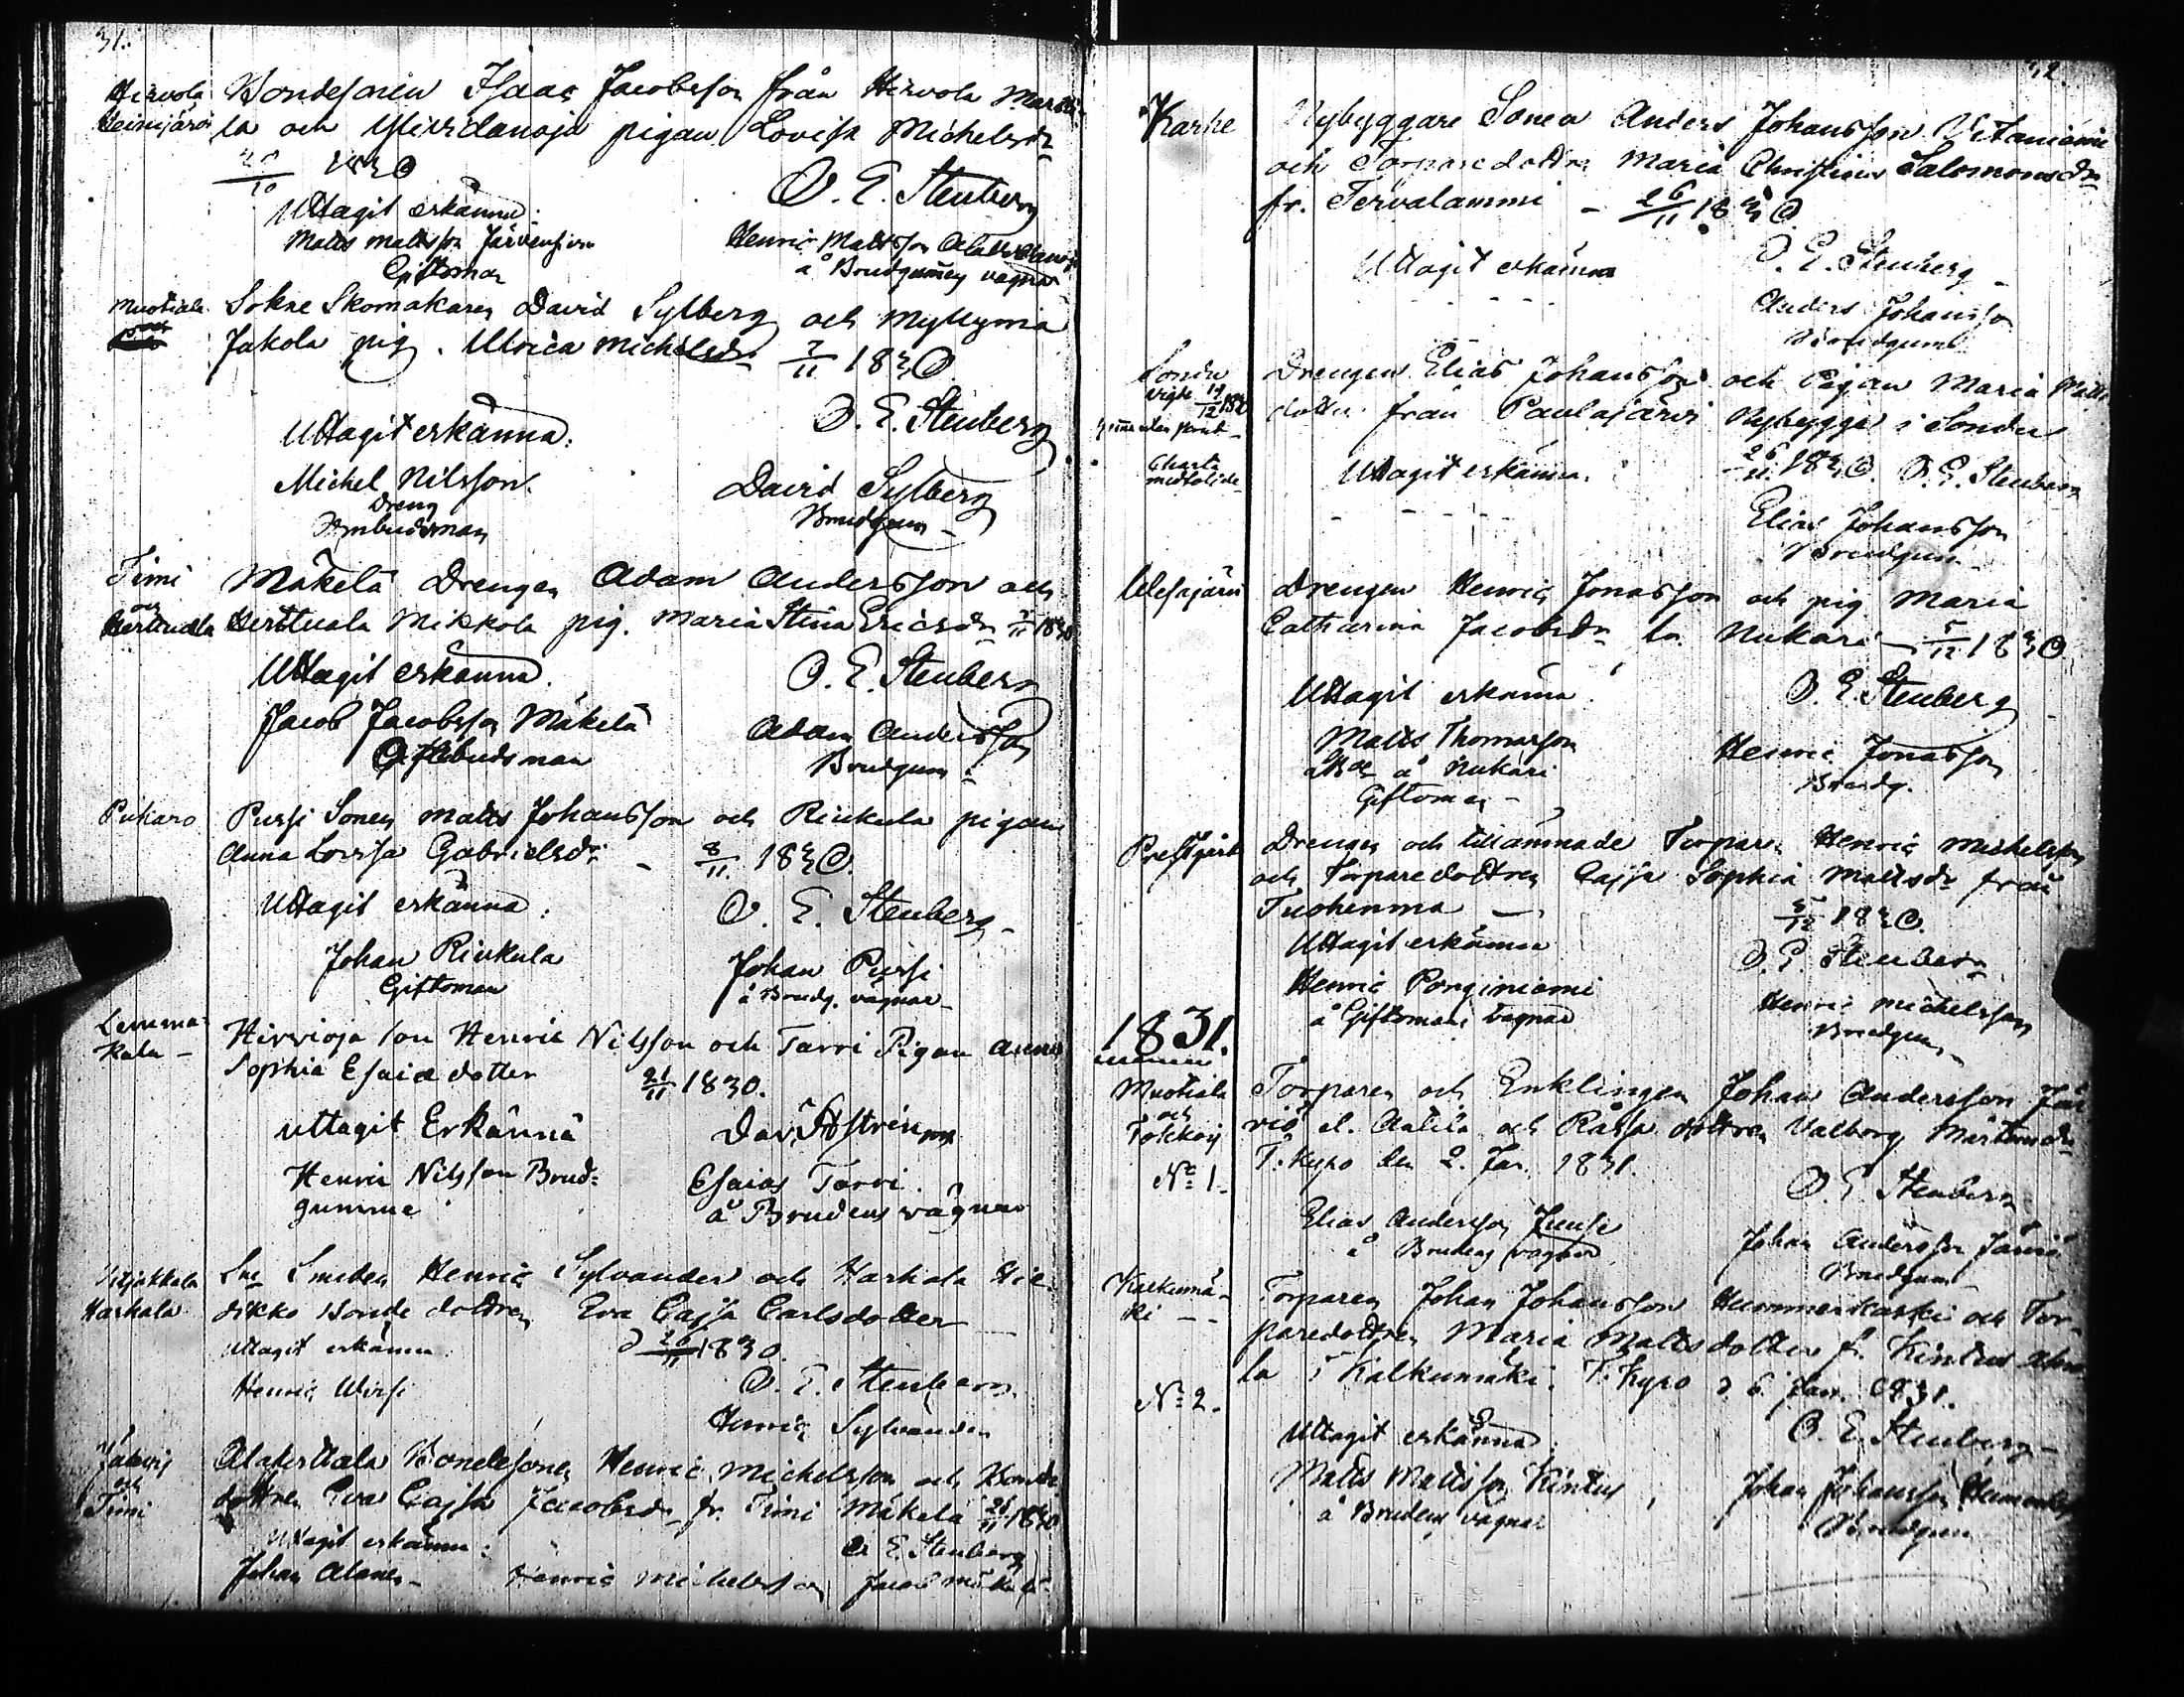 31.
Hirvola Bondesonen Isaac Jacobsson från Hirvola Martti-
Heinijärvi la och Yliirdanoja pigan Lovisa Michelsdr
/10 1830
O. E. Stenberg
Uttagit erkänna:
Matts Mattsson Järvensivu
Giftoman
Henric Mattsson
å Brudgumens vägnar
Muotiala Sokne Skomakaren David Sylberg och Myllymä
Jakola pig. Ulrica Michelsdr 7/11 1830
O. E. Stenberg
Uttagit erkänna:
Michel Nilsson
Dreng
Ombudsman
David Sylberg
Brudgum
Timi Mäkelä Drengen Adam Andersson och
och
Herttuala Herttuala Mikkola pig. Maria Stina Ericsdr /11 1830
Uttagit erkänna.
O. E. Stenberg
Jacob Jacobsson Mäkelä
Ombudsman
Adam Andersson
Brudgum
Pukaro Pursi Sonen Matts Johansson och Rinkula pigan
Anna Lovisa Gabrielsdr - 8/11 1830.
Uttagit erkänna:
O. E. Stenberg
Johan Rinkula
Giftoman
Johan Pursi
å Brudg. vägnar
Lemma-
kala - Hirvioja son Henric Nilsson och Tarri Pigan Anna
Sophia Esaiædotter 21/11 1830.
uttagit Erkännä
Dav. Aström
Henric Nilsson Brud=
gumme
Esaias Tarri
å Brudens vägnar
Viljakkala Smeden Henric Sylvander och Harhala Hie-
Harhala dikko Bonde dottren Eva Cajsa Carlsdotter
Uttagit erkänna d 26/11 1830.
Henric Wirsi
O. E. Stenberg
Henric Sylvander
och
Timi
Alaherttala Bondesonen Henric Michelsson och Bonde
dottren Eva Cajsa Jacobsdr fr. Timi Mäkelä 26/11 1830
Uttagit erkänna:
O E. Stenberg
Johan Alanen
Henric Michelsson
Jacob Mäkelä
32.
Karhe Nybyggare Sonen Anders Johansson Vitaniemi
och Torparedottren Maria Christina Salomonsdr
fr. Tervalammi - 26/11 1830
Uttagit erkänna
O. E. Stenberg
Anders Johansson
Brudgum
Sondu Drengen Elias Johansson och Pigan Maria Matts
Vigde 19/12 1830 dotter från Paulajärvi Nybygge i Sondu
26/11 1830. O. E. Stenberg
Charta
medfölde
Uttagit erkänna.
Elias Johansson
Brudgum
Drengen Henric Jonasson och pig Maria
Catharina Jacobsdr fr. Nukari 5/12 1830
Uttagit erkänna.
O. E. Stenberg
Matts Thomasson
å Nukari
Giftoman
Henric Jonasson
Brudg.
Prestgård Drengen och tillämnade Torparen Henric Michelsson
och Torparedottren Cajsa Sophia Mattsdr från
Tuohenma - 5/12 1830.
Uttagit erkänna
O. E. Stenberg
Henric Ponginiemi
å Giftomans vägnar
Henric Michelsson
Brudgum
1831.
Muotiala
och
Tokkoij
Torparen och Enklingen Johan Andersson Jär
viö el. Antila och Råssa dottren Valborg Mårtensdr
T. Kyro den 2. Jan. 1831.
No 1.
O. E. Stenberg
Elias Andersson Juusi
å Brudens vägnar
Johan Andersson Järviö
Brudgum
Kalkunmä-
ki - -
Torparen Johan Johansson Hummerkoski och Tor-
paredottren Maria Mattsdotter fr. Kintus
la i Kalkunmäki. T. Kyro d. 6 Jan. 1831.
No 2.
Uttagit erkänna
O. E. Stenberg
Matts Mattsson Kintus
å Brudens vägnar
Johan Johansson
Brudgum